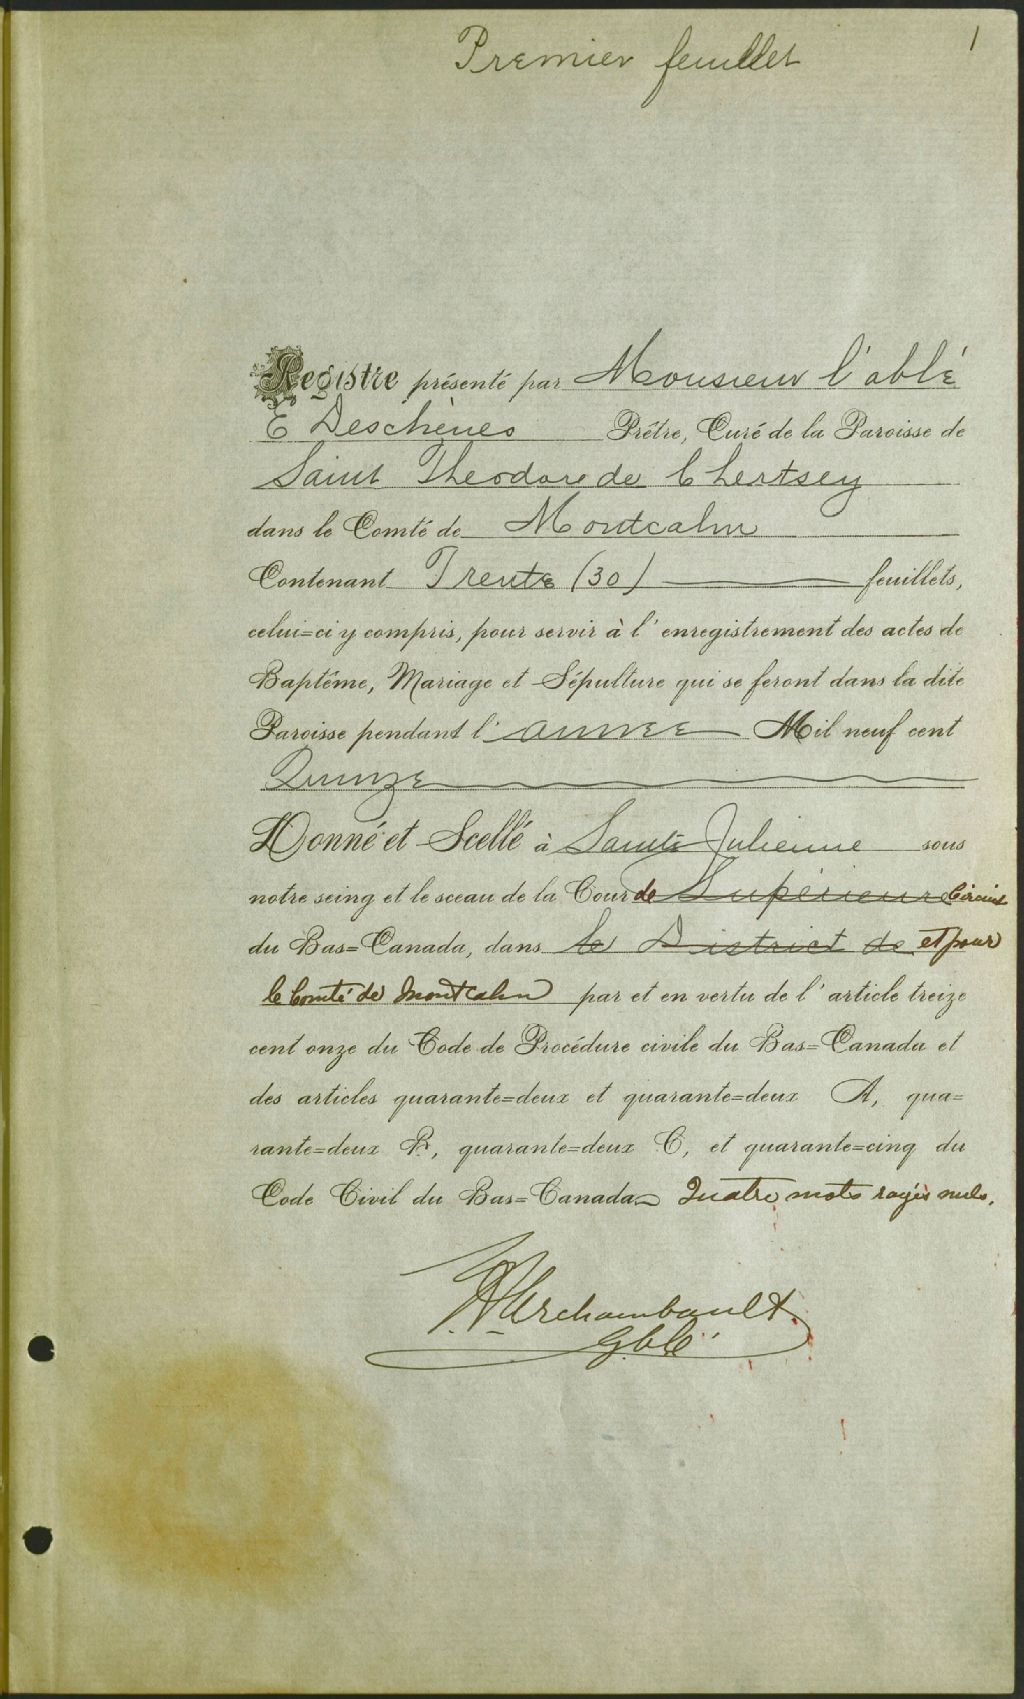 Premier feuillet
1
Registre présenté par Monsieur l'abbé
E Deschènes Prêtre, Curé de la Paroisse de
Saint Theodore de Chertsey
dans le Comté de Montcalm
Contenant Trente (30) feuillets,
celui=ci y compris, pour servir à l'enregistrement des actes de
Baptême, Mariage et Sépulture qui se feront dans la dite
Paroisse pendant l'annee Mil neuf cent
Quinze
Donné et Scellé à Sainte Julienne sous
notre seing et le sceau de la Cour de Supérieure Circuit
du Bas=Canada, dans le District de et pour
le Comté de Montcalm par et en vertu de l'article treize
cent onze du Code de Procédure civile du Bas=Canada et
des articles quarante=deux et quarante=deux A, qua=
rante=deux B, quarante=deux C, et quarante=cinq du
Code Civil du Bas=Canada Quatre mots rayés nuls.
Archambault